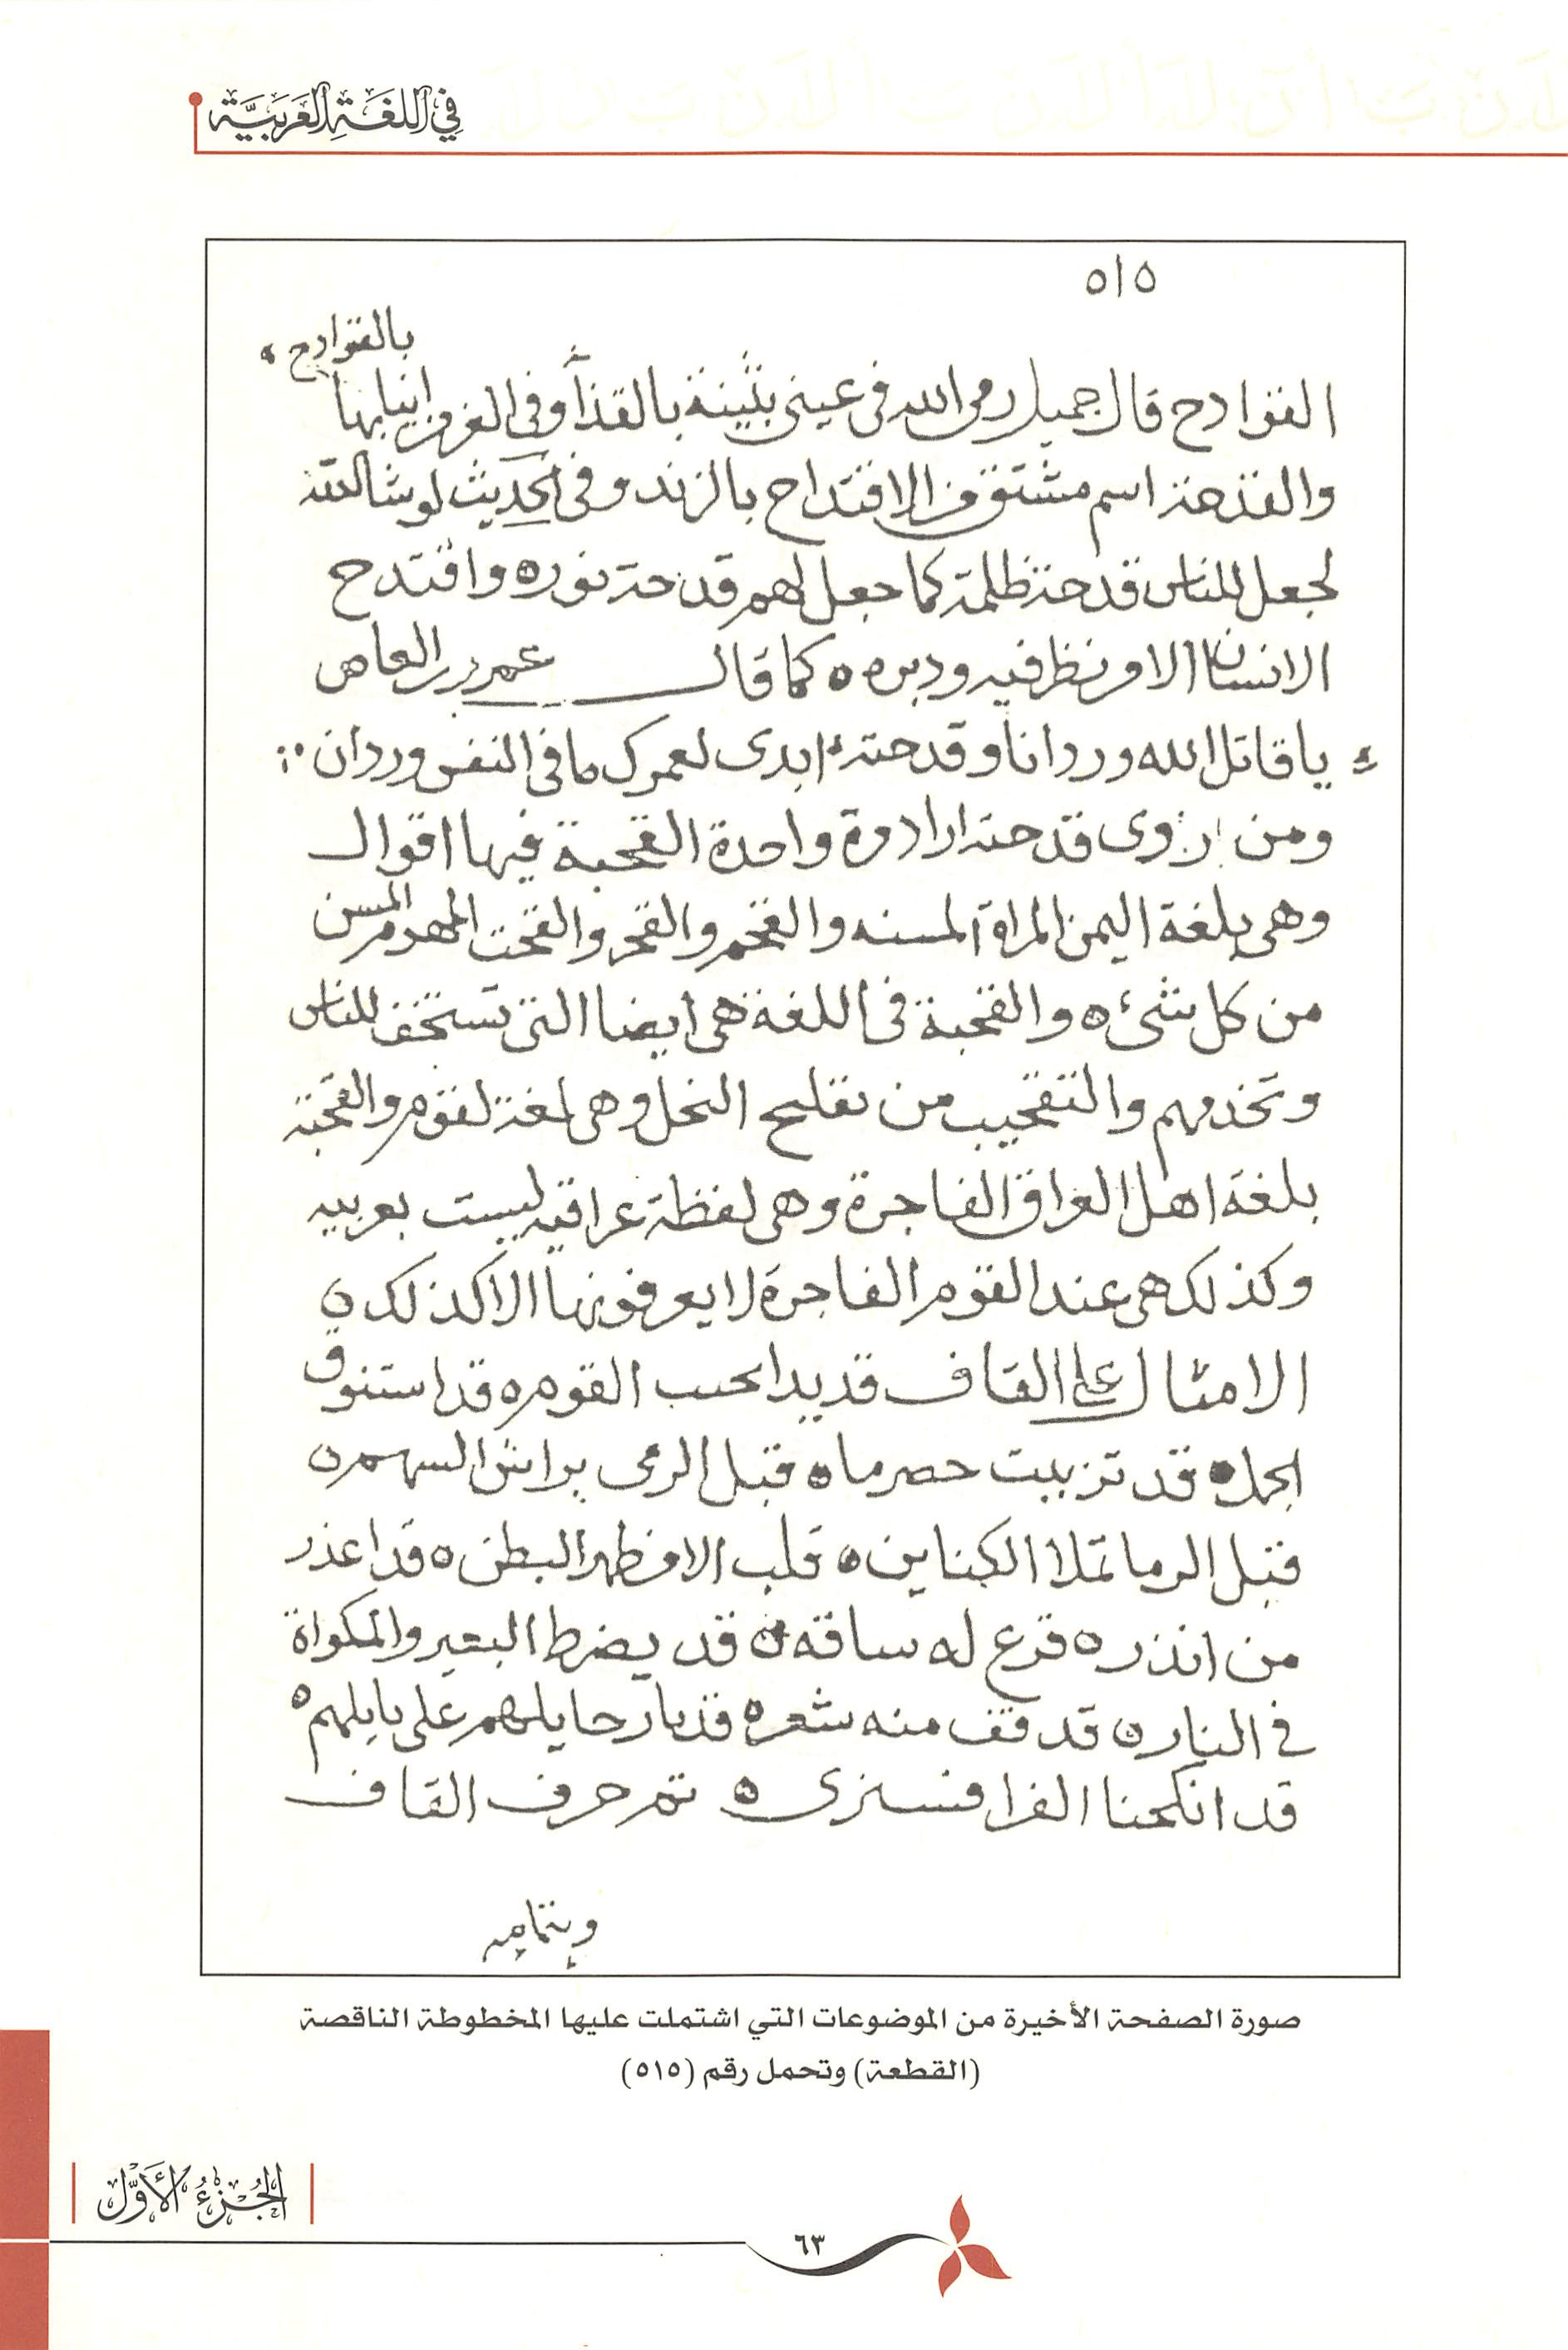 في اللغة العربية
٥١٥
بالقوادح
القوادح قال جميل رمى الله في عيني بثينة بالقذا وفي الغر من انيابها
والقدحة اسم مشتق من الاقتداح بالزند وفي الحديث لو شا الله
لجعل للناس قدحة ظلمة كما جعل لهم قدحة نوره واقتدح
الانسان الامر نظر فيه ودبره ٥ كما قال عمرو بن العاص
يا قاتل الله وردانا وقدحته ابدى لعمرك ما في النفس وردان
ومن روى قدحته اراد مرة واحدة القحبة فيها اقوال
وهي بلغة اليمن المراة المسنه والقحم والقحر والقحب الهرم المسن
من كل شيء ٥ والقحبة في اللغة هي ايضا التي تستخف للناس
وتخدمهم والتقحيب من تقليح النخل وهي لغة لقوم والقحبة
بلغة اهل العراق الفاجرة وهي لفظة عراقيه ليست بعربيه
وكذلك هي عند القوم الفاجرة لا يعرفونها الا كذلك ٥
الامثال على القاف قد يدا بحسب القوم ٥ قد استنوق
الجمل ٥ قد تزببت حصرما ٥ قبل الرمى يراش السهم ٥
قبل الرما تملا الكناين ٥ قلب الامر ظهر البطن ٥ قد اعذر
من انذر ٥ قرع له ساقه ٥ قد يضرط البعير والمكواة
في النار ٥ قد قف منه شعره قد بار حايلهم على بابلهم ٥
قد انكحنا الفرا فسنرى ٥ تم حرف القاف
وبتمامه
صورة الصفحة الأخيرة من الموضوعات التي اشتملت عليها المخطوطة الناقصة
(القطعة) وتحمل رقم (٥١٥)
الجزء الأول
٦٣